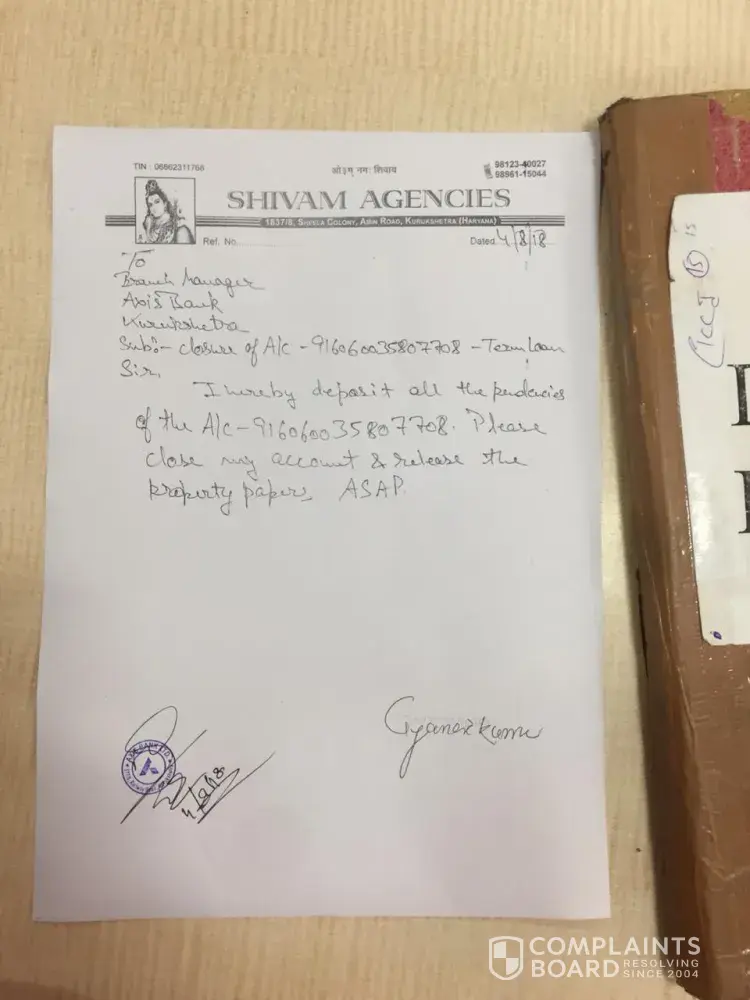 TIN : 06862311768
ओ३म् नमः शिवाय
98123-40027
98961-15044
SHIVAM AGENCIES
1837/8, Shivla Colony, Amin Road, Kurukshetra (Haryana)
Ref. No.
Dated 4/8/18
To
Branch Manager
Axis Bank
Kurukshetra
Sub:- closure of A/c - 916060035807708 - Term Loan
Sir,
I hereby deposit all the pendencies
of the A/c - 916060035807708. Please
close my account & release the
property papers ASAP.
AXIS BANK LTD.
4/8/18
ICCJ 15 15
COMPLAINTS
BOARD RESOLVING
SINCE 2004